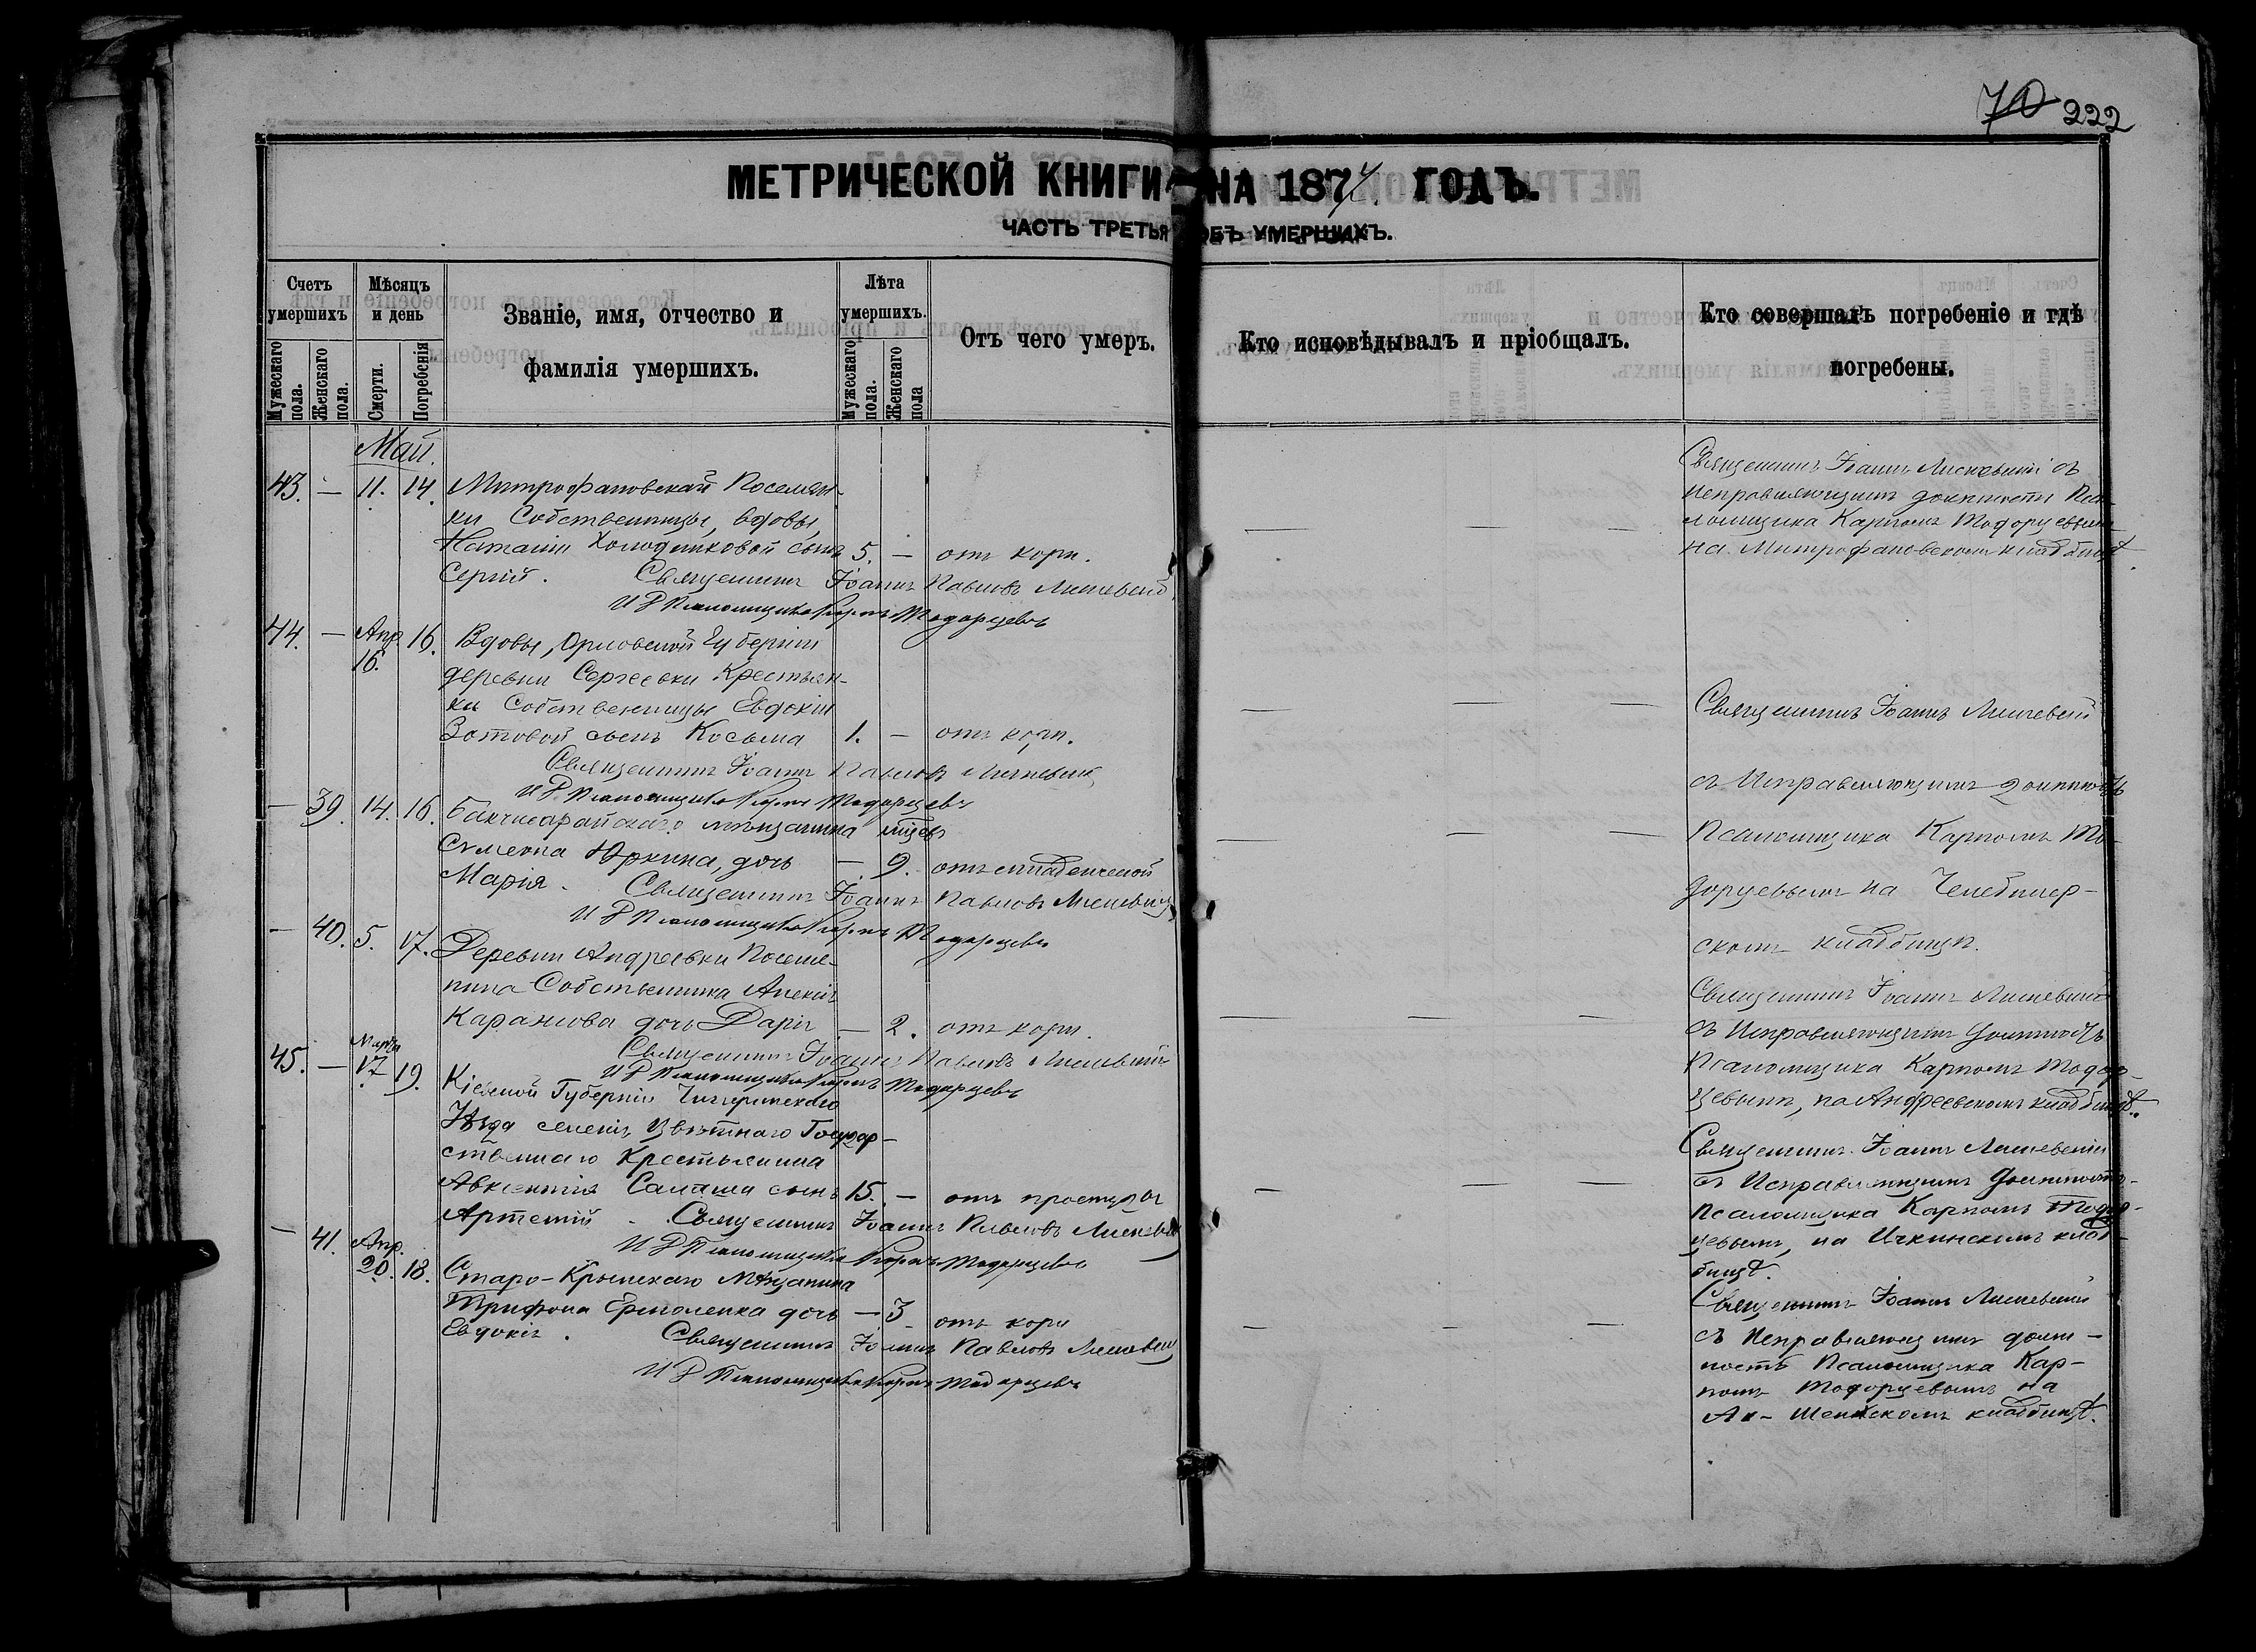 70 222
МЕТРИЧЕСКОЙ КНИГИ НА 1874 ГОДЪ.
ЧАСТЬ ТРЕТЬЯ ОБЪ УМЕРШИХЪ.
Счетъ умершихъ
Мужескаго пола.
Женскаго пола.
Мѣсяцъ и день
Смерти.
Погребенія
Званіе, имя, отчество и
фамилія умершихъ.
Лѣта умершихъ.
Мужескаго пола.
Женскаго пола
Отъ чего умеръ.
Кто исповѣдывалъ и пріобщалъ.
Кто совершалъ погребеніе и гдѣ
погребены.
Май.
43. — 11. 14. Митрофановской Поселян-
ки Собственницы, вдовы,
Наталіи Холодняковой сынъ 5. — отъ кори.
Сергій. Священникъ Іоаннъ Павловъ
И Д Псаломщика Карпъ Тодорцевъ
Священникъ Іоаннъ съ
Исправляющимъ должность Пса-
ломщика Карпомъ Тодорцевымъ
на Митрофановскомъ кладбищѣ.
44. — Апр. 16. 16. Вдовы, Орловской Губерніи
деревни Сергеевки Крестьян-
ки Собственницы Евдокіи
Зотовой сынъ Косьма 1. — отъ кори.
Священникъ Іоаннъ Павловъ
И Д Псаломщика Карпъ Тодорцевъ
Священникъ Іоаннъ
— 39. 14. 16. Бакчисарайскаго мѣщанина
Симеона Юркина, дочь — 9. отъ младенческой
Марія. Священникъ Іоаннъ Павловъ
И Д Псаломщика Карпъ Тодорцевъ
съ Исправляющимъ должность
Псаломщика Карпомъ То-
дорцевымъ на
скомъ кладбищѣ.
— 40. 5. 17. Деревни Андреевки Поселя-
нина Собственника Алексія
дочь Дарія — 2. отъ кори.
Священникъ Іоаннъ Павловъ
И Д Псаломщика Карпъ Тодорцевъ
Священникъ Іоаннъ
съ Исправляющимъ должность
Псаломщика Карпомъ Тодор-
цевымъ, на Андреевскомъ кладбищѣ.
45. — Марта 17. 19. Кіевской Губерніи Чигиринскаго
Уѣзда селенія Цвѣтнаго Государ-
ственнаго Крестьянина
Авксентія сынъ 15. — отъ простуды
Артемій. Священникъ Іоаннъ Павловъ
И Д Псаломщика Карпъ Тодорцевъ
Священникъ Іоаннъ
съ Исправляющимъ должность
Псаломщика Карпомъ Тодор-
цевымъ, на Ичкинскомъ клад-
бищѣ.
— 41. Апр. 20. 18. Старо-Крымскаго Мѣщанина
Трифона Ермоленка дочь — 3 отъ кори
Евдокія. Священникъ Іоаннъ Павловъ
И Д Псаломщика Карпъ Тодорцевъ
Священникъ Іоаннъ
съ Исправляющимъ долж-
ность Псаломщика Кар-
помъ Тодорцевымъ на
Ак-Шеихскомъ кладбищѣ.